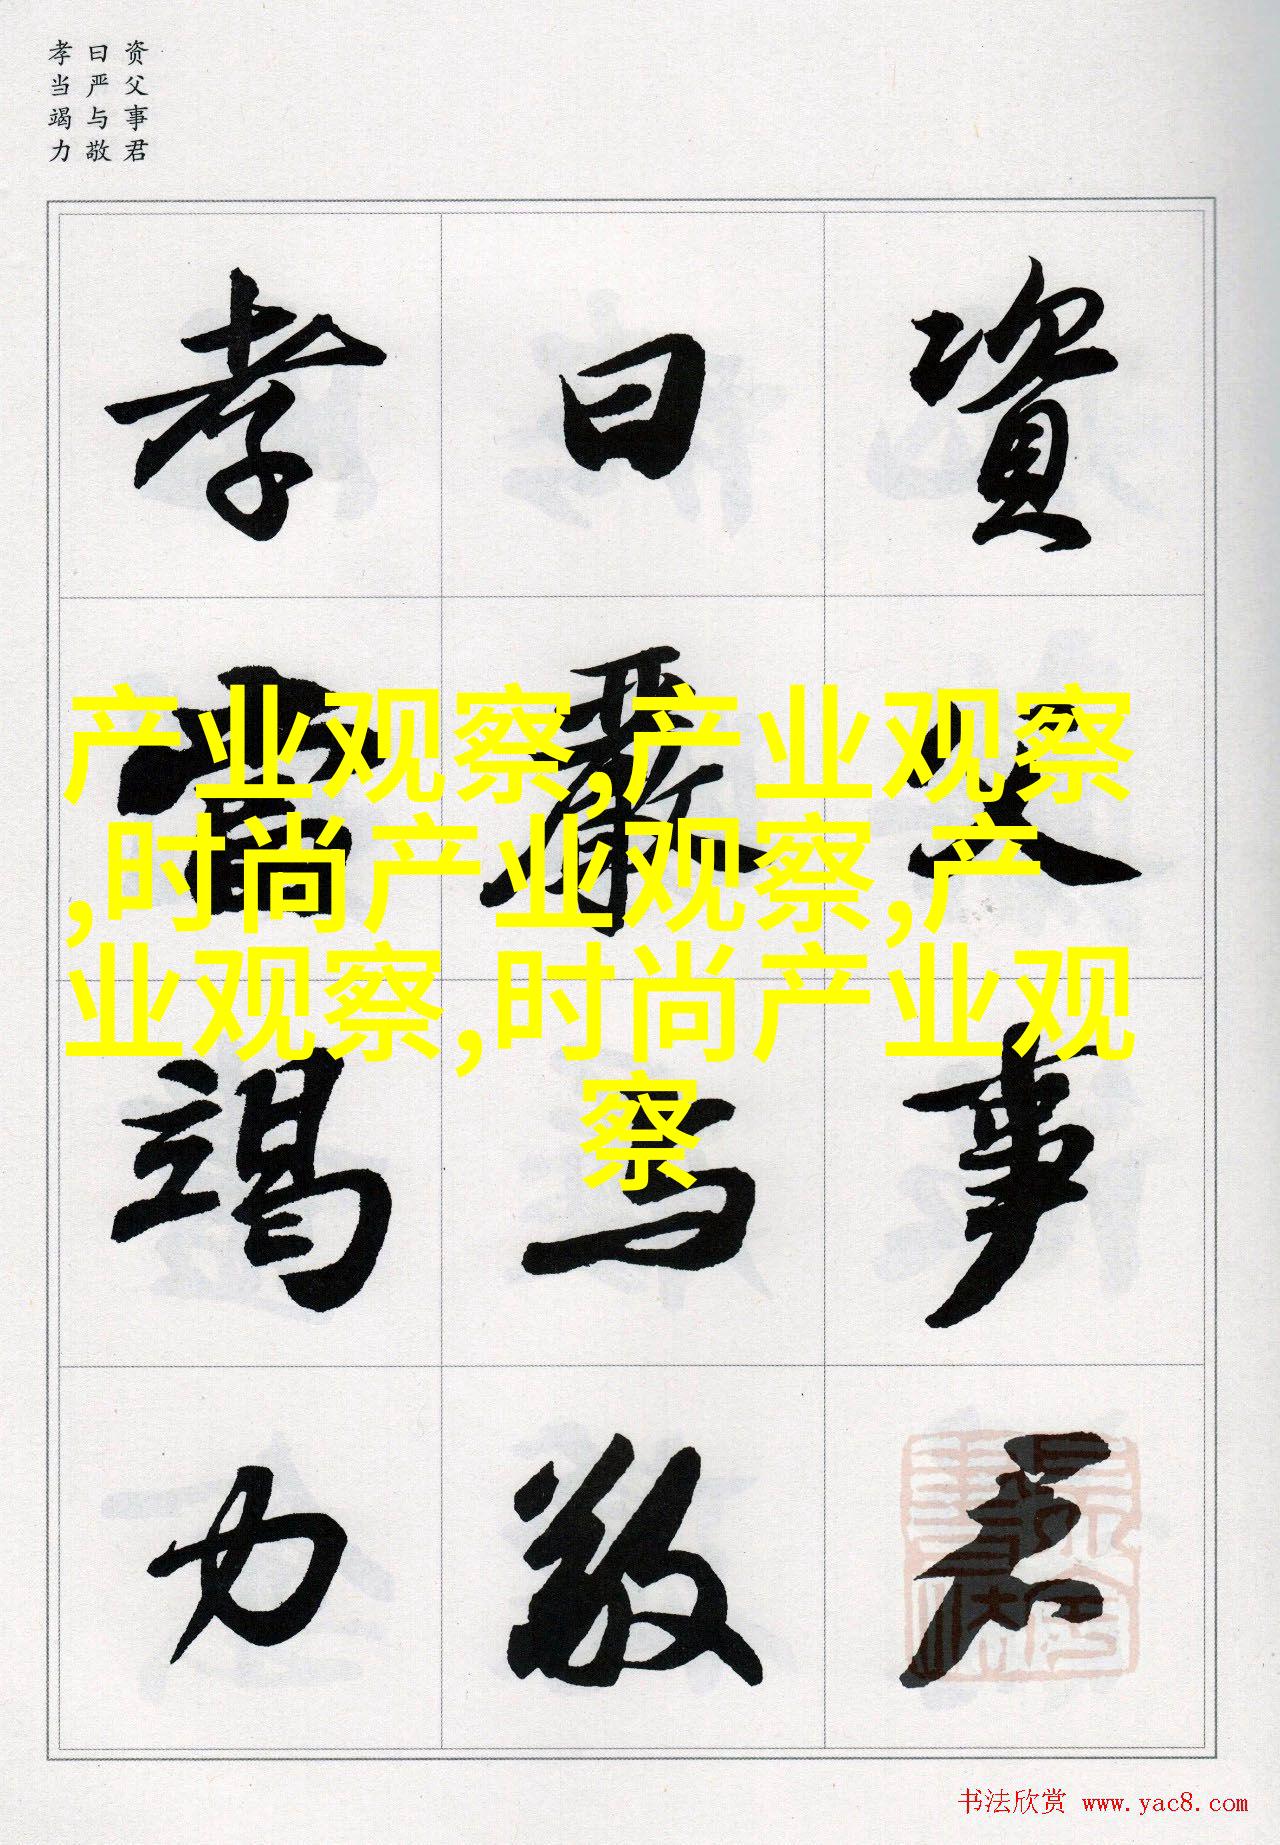 资父事君
曰严与敬
孝当竭力
資父事君
曰嚴与敬
孝當竭力
产业观察,产业观察
,时尚产业观察,产
业观察,时尚产业观
察
书法欣赏 www.yac8.com